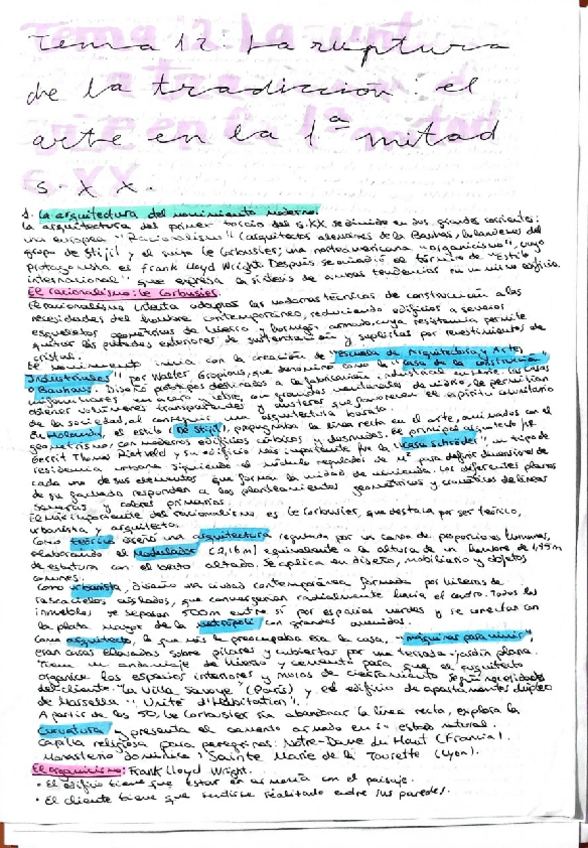 Tema 12: La ruptura
de la tradición: el
arte en la 1ª mitad
s. XX.
1. La arquitectura del movimiento moderno.
La arquitectura del primer tercio del s.XX se divide en dos grandes corrientes:
una europea "Racionalismo" (arquitectos alemanes de la Bauhaus, holandeses del
grupo de Stijl y el suizo Le Corbusier; una norteamericana "organicismo", cuyo
protagonista es Frank Lloyd Wright. Después se añadió el término de "Estilo
internacional" que expresa la síntesis de ambas tendencias en un mismo edificio.
El racionalismo: Le Corbusier.
El racionalismo intenta adaptar las modernas técnicas de construcción a las
necesidades del hombre contemporáneo, reduciendo edificios a severos
esqueletos geométricos de hierro y hormigón armado, cuya resistencia permite
quitar los pesados exteriores de sustentación y suplirlos por revestimientos de
cristal.
Se movimiento inicia con la creación de "escuela de Arquitectura y Artes
Industriales" por Walter Gropius, que denominó como la "casa de la construcción"
o Bauhaus. Diseñó prototipos destinados a la fabricación industrial
en acero y con grandes ventanales de vidrio, le permitían
obtener volúmenes transparentes y que favorecen el espíritu
de la sociedad, al conseguir una arquitectura barata.
En Holanda, el estilo De Stijl, propugnaba la línea recta en el arte, animados con el
geometrismo, con modernos edificios cúbicos y desnudos. Su principal arquitecto fue
Gerrit Thomas Rietveld y su edificio más importante fue la "casa schröder", un tipo de
residencia urbana siguiendo el módulo regulador de 1m² para definir dimensiones de
cada uno de sus elementos que forman la unidad de vivienda. Los diferentes planos
de su fachada responden a los planteamientos geométricos y cromáticos de líneas
y colores primarios.
El más importante del racionalismo es Le Corbusier, que destaca por ser teórico,
urbanista, y arquitecto.
Como teórico diseñó una arquitectura regulada por un canon de proporciones humanas,
elaborando el Modulador (2,16m) equivalente a la altura de un hombre de 1,75m
de estatura con el brazo alzado. Se aplica en diseño, mobiliario y objetos
comunes.
Como urbanista, diseñó una ciudad contemporánea formada por hileras de
rascacielos aislados, que convergerían radialmente hacia el centro. Todos los
inmuebles se separan 500m entre sí por espacios verdes y se conectan con
la plaza mayor de la metrópoli con grandes avenidas.
Como arquitecto, lo que más le preocupaba era la casa, "máquinas para vivir",
eran casas elevadas sobre pilares y cubiertas por una terraza-jardín plana.
Tienen un andamiaje de hierro y cemento para que el arquitecto
organice los espacios interiores y muros de cerramiento según necesidades
del cliente. "La Villa Savoye" (París) y el edificio de apartamentos dúplex
de Marsella "Unité d'Habitation".
A partir de los 50, Le Corbusier sin abandonar la línea recta, explora la
curvatura y presenta el cemento armado en estado natural.
Capilla religiosa para peregrinos: Notre-Dame du Haut (Francia).
Monasterio dominico: Sainte Marie de la Tourette (Lyon).
El organicismo: Frank Lloyd Wright.
• El edificio tiene que estar en armonía con el paisaje.
• El cliente tiene que sentirse realizado entre sus paredes.